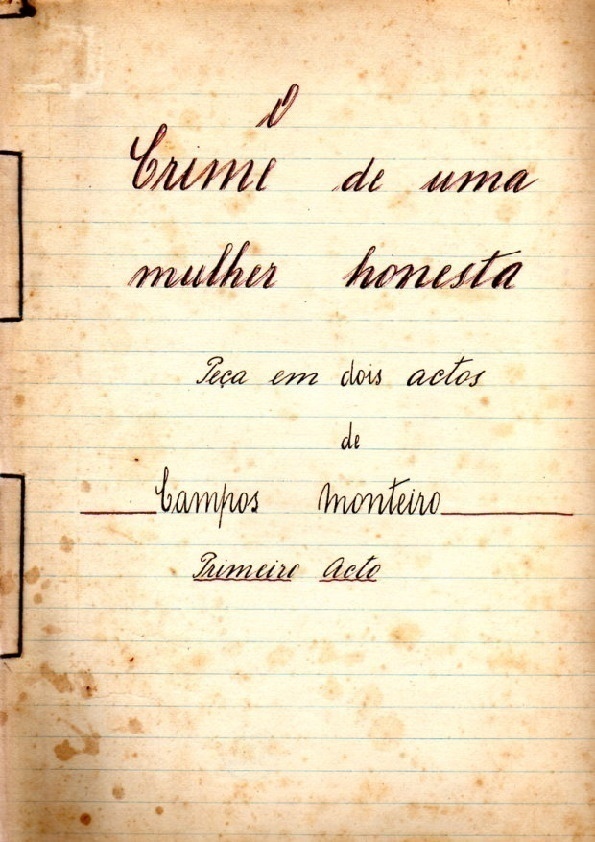 O
Crime de uma
mulher honesta
Peça em dois actos
de
Campos Monteiro
Primeiro Acto